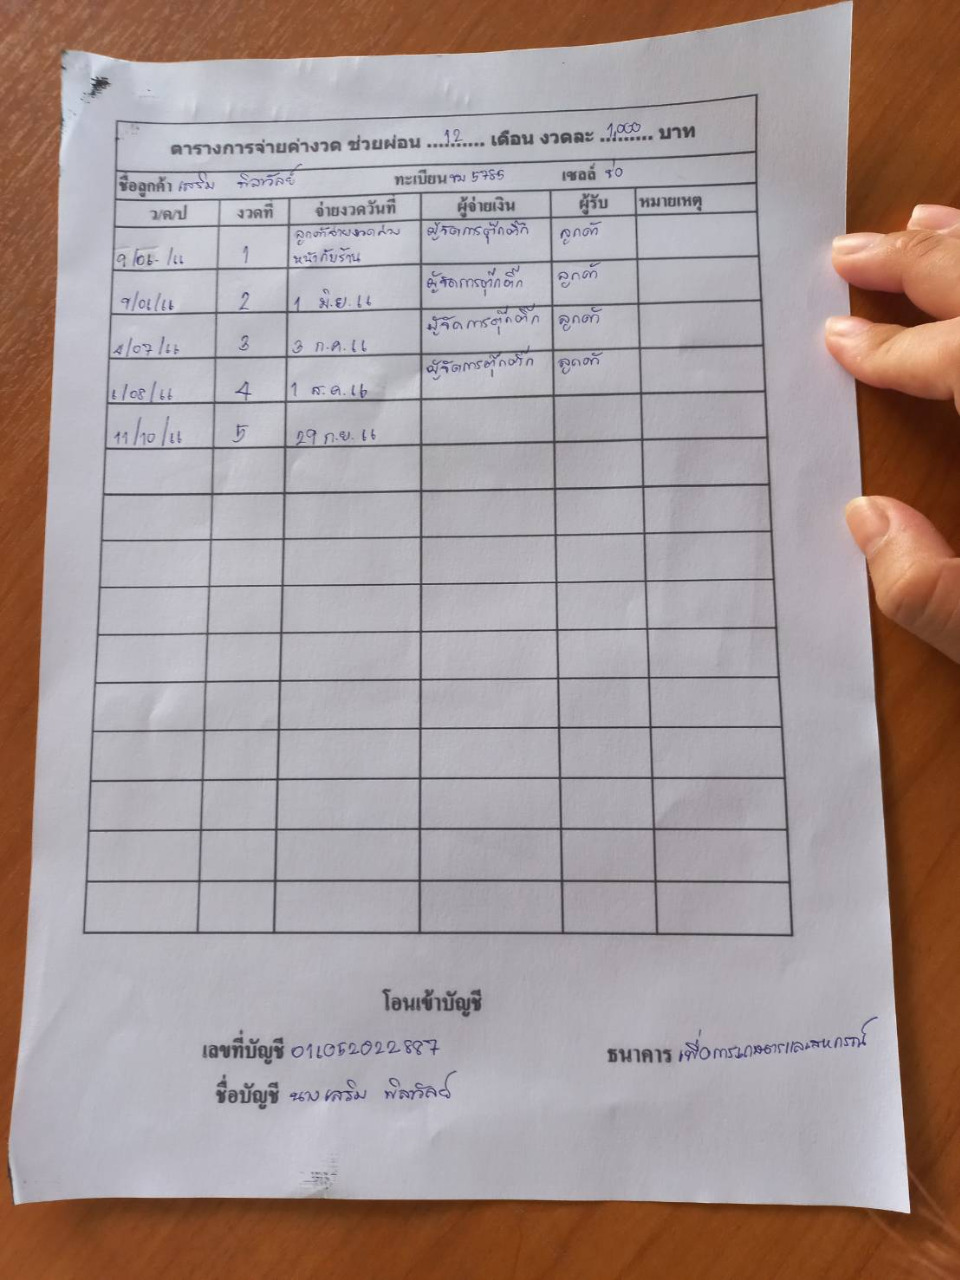 ตารางการจ่ายค่างวด ช่วยผ่อน ....12.... เดือน งวดละ ..1,000.. บาท
ชื่อลูกค้า เสริม พิลาวัลย์ ทะเบียน 5785 เซลล์
ว/ด/ป งวดที่ จ่ายงวดวันที่ ผู้จ่ายเงิน ผู้รับ หมายเหตุ
1 ลูกค้าจ่ายงวดล่วง ผู้จัดการตุ๊กติ๊ก ลูกค้า
หน้ากับร้าน
2 1 มิ.ย. 66 ผู้จัดการตุ๊กติ๊ก ลูกค้า
/07/66 3 3 ก.ค. 66 ผู้จัดการตุ๊กติ๊ก ลูกค้า
/08/66 4 1 ส.ค. 66 ผู้จัดการตุ๊กติ๊ก ลูกค้า
11/10/66 5 29 ก.ย. 66
โอนเข้าบัญชี
เลขที่บัญชี 011052022887 ธนาคาร เพื่อการเกษตรและสหกรณ์
ชื่อบัญชี นาง เสริม พิลาวัลย์